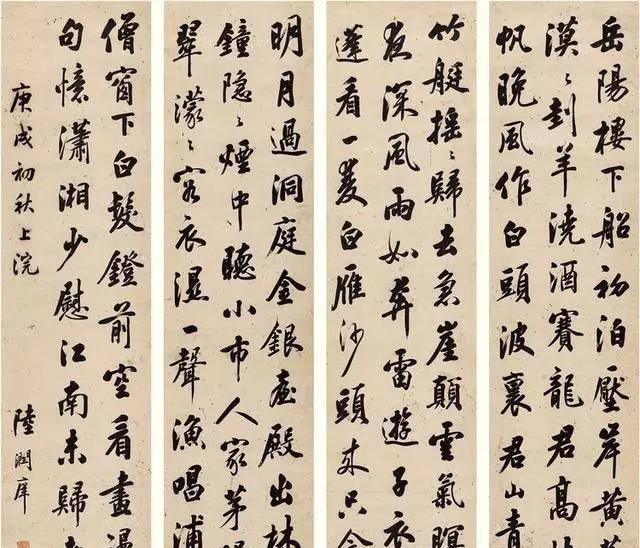 岳陽樓下船初泊壓岸黃
漠〻刲羊澆酒賽龍君高
帆晚風作白頭波裏君山青
竹艇搖〻歸去急崖顛雲氣暝
夜深風雨如奔雷遊子衣
蓬看一雙白雁沙頭來只今
明月過洞庭金銀臺殿出林
鐘隱〻煙中聽小市人家茅
翠濛〻客衣濕一聲漁唱浦
僧窗下白髮鐙前空看畫
句憶瀟湘少慰江南未歸
庚戌初秋上浣
陸潤庠